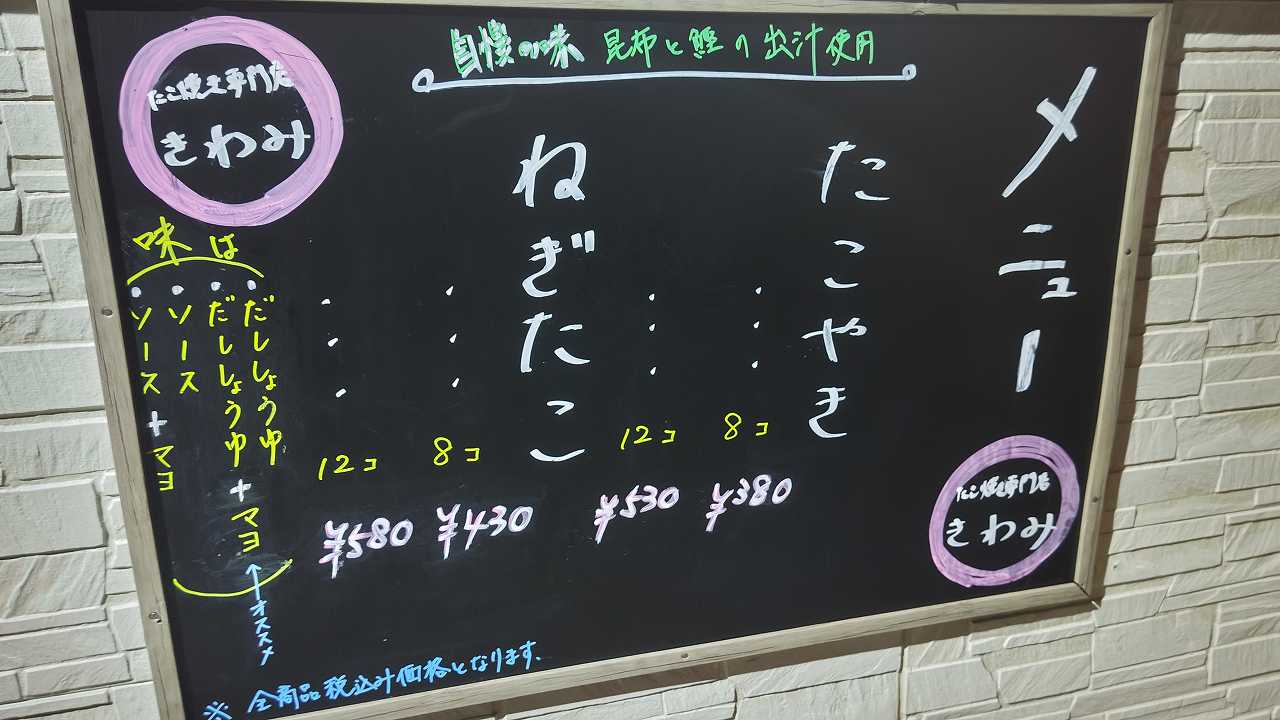 自慢の味 昆布と鰹の出汁使用
メニュー
たこやき
・・・8コ ¥380
・・・12コ ¥530
ねぎたこ
・・・8コ ¥430
・・・12コ ¥580
たこ焼き専門店
きわみ
味は
・だししょうゆ
・だししょうゆ+マヨ ←オススメ
・ソース
・ソース+マヨ
※全商品税込み価格となります.
たこ焼き専門店
きわみ